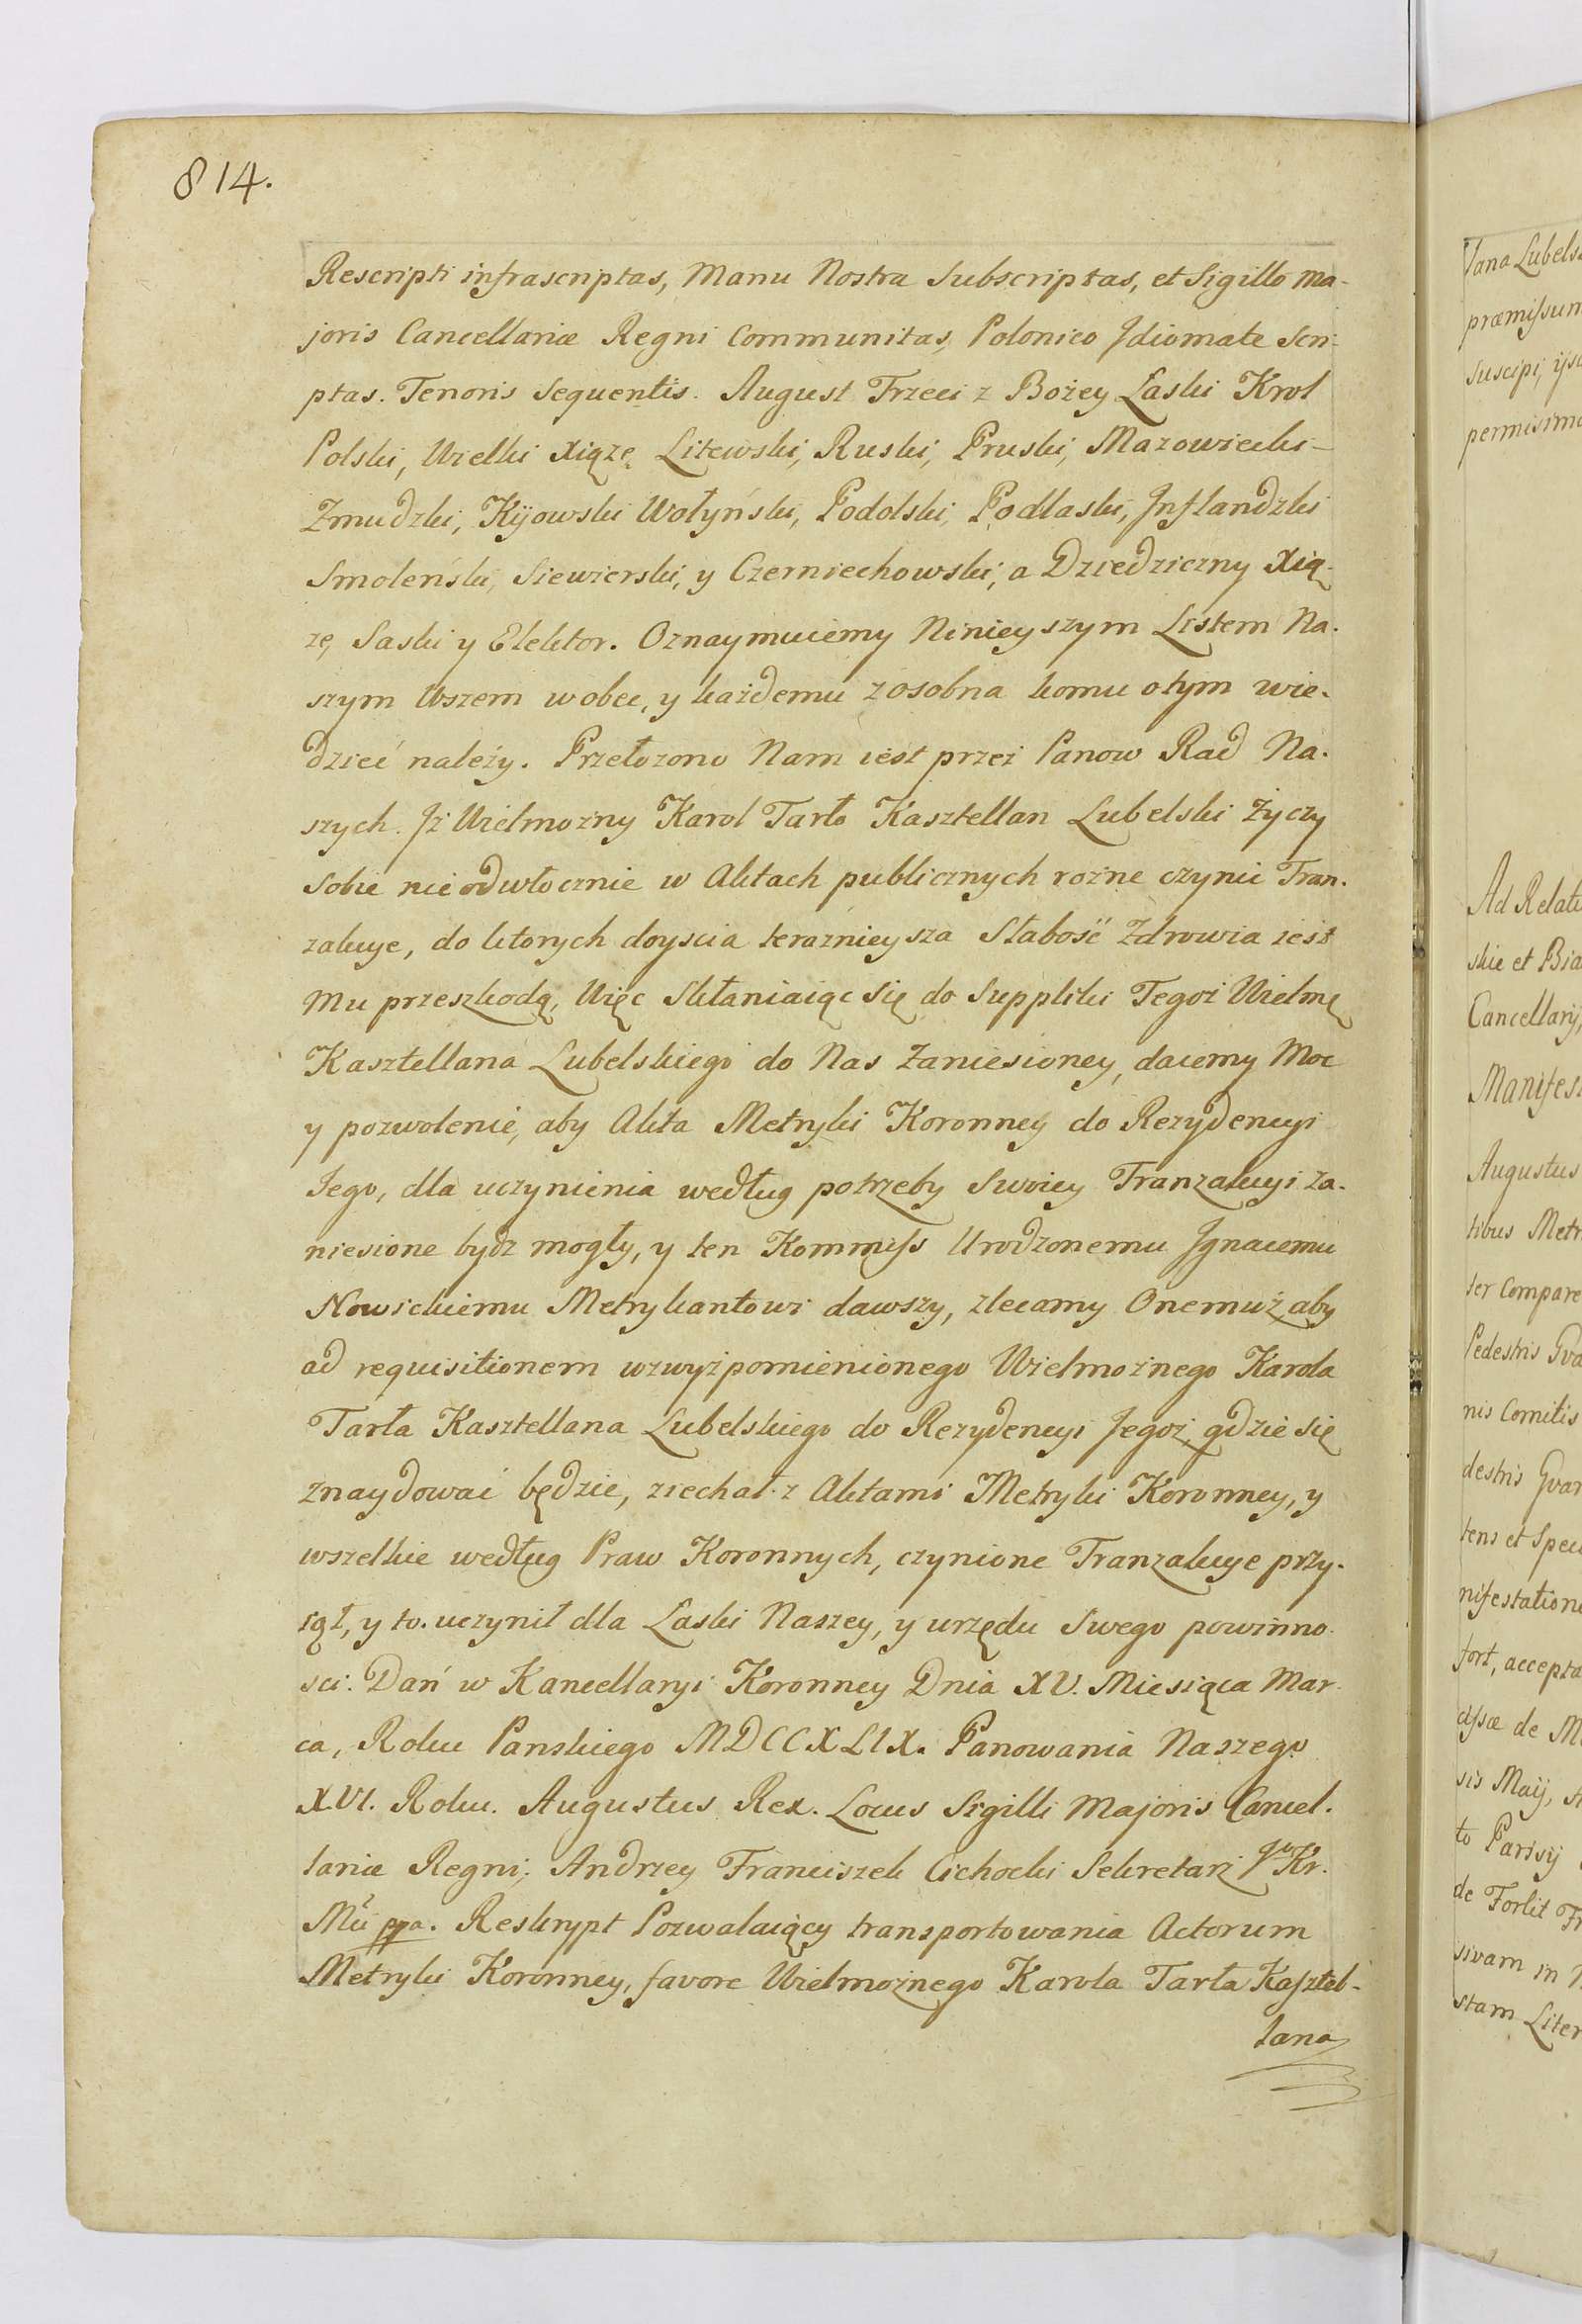 814.
Rescripti infrascriptas, Manu Nostra Subscriptas, et Sigillo Ma-
joris Cancellariæ Regni Communitas, Polonico Idiomate Scri-
ptas. Tenoris Sequentis. August Trzeci z Bożey Łaski Krol
Polski, Wielki Xiąze Litewski, Ruski, Pruski, Mazowiecki
Zmudzki, Kijowski Wołyński, Podolski, Podlaski, Inflandzki
Smoleński, Siewierski, y Czerniechowski, a Dziedziczny Xią-
ze, Saski y Elektor. Oznaymuiemy Ninieyszym Listem Na-
szym Wszem wobec, y każdemu zosobna komu otym wie-
dzieć należy. Przełozono Nam iest przez Panow Rad Na-
szych. Iż Wielmożny Karol Tarło Kasztellan Lubelski Życzy
Sobie nieodwłocznie w Aktach publicznych rożne czynic Tran-
zakcye, do ktorych doyscia teraznieysza Słabość Zdrowia iest
Mu przeszkodą, Więc Skłaniaiąc Się do Suppliki Tegoż Wielmę
Kasztellana Lubelskiego do Nas Zaniesioney, daiemy Moc
y pozwolenie, aby Akta Metryki Koronney do Rezydencyi
Iego, dla uczynienia według potrzeby Swoiey Tranzakcyi za-
niesione bydz mogły, y ten Kommiss Urodzonemu Ignacemu
Nowickiemu Metrykantowi dawszy, zlecamy Onemuż aby
ad requisitionem wzwyżpomienionego Wielmożnego Karola
Tarła Kasztellana Lubelskiego do Rezydencyi Jegoż, gdzie się
znaydować będzie, ziechał z Aktami Metryki Koronney, y
wszelkie według Praw Koronnych, czynione Tranzakcye przy-
iął, y to uczynił dla Łaski Naszey, y urzędu Swego powinno-
sci. Dań w Kancellaryi Koronney Dnia XV. Miesiąca Mar-
ca, Roku Panskiego MDCCXLIX. Panowania Naszego
XVI. Roku. Augustus Rex. Locus Sigilli Majoris Cancel-
lariæ Regni, Andrzey Franciszek Cichocki Sekretarz Kr.
Mci ppa. Reskrypt Pozwalaiący transportowania Actorum
Metryki Koronney, favore Wielmożnego Karola Tarła Kasztel-
lana
Jana Lubels
præmissum
suscipi, ijs
permisimu
Ad Relati
skie et Bia
Cancellarij
Manifes
Augustus
tibus Metr
ter Compare
Pedestris Gva
nis Comitis
destris Gvar
tens et Spec
nifestatione
fort, accepta
de M
sis Maij, A
to Parisij
de Forlit Fr
sivam in
stam Liter